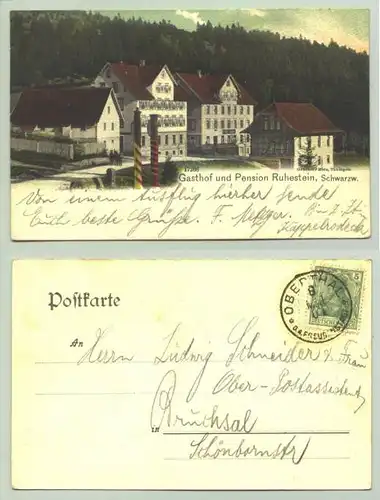 17200
Gasthof und Pension Ruhestein, Schwarzw.
Von einem Ausflug hierher sende
Euch beste Grüße. F. Metzger.
Kappelrodeck
Postkarte
An
Herrn Ludwig Schneider & Frau
Ober-Postassistent
in Bruchsal
Schönbornstr
OBERTHAL
5